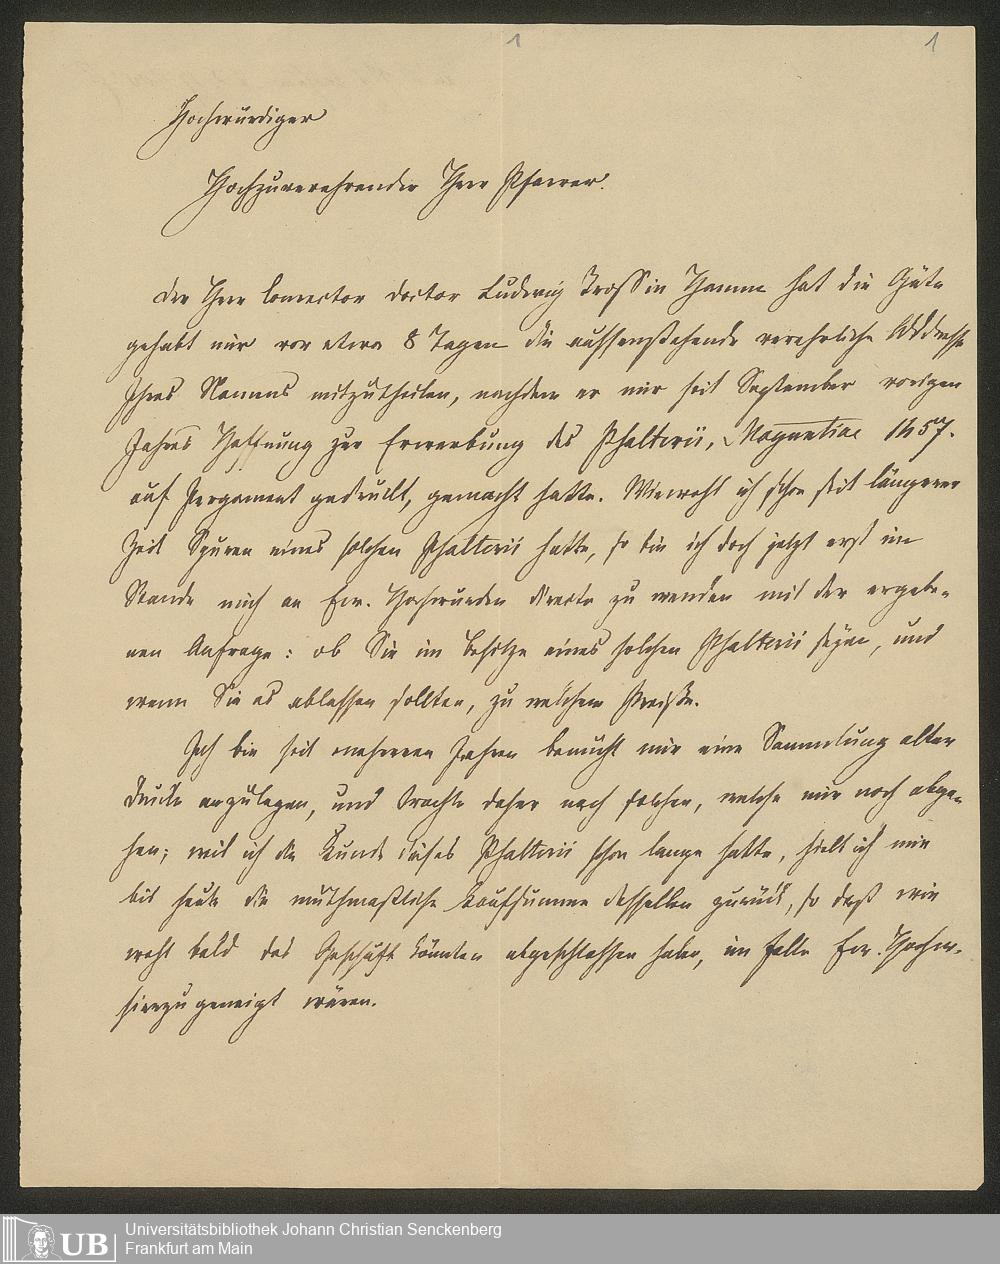 1 1
Hochwürdiger
Hochzuverehrender Herr Pfarrer.
Der Herr Conrector Doctor Ludwig Tross in Hamm hat die Güte
gehabt mir vor etwa 8 Tagen die aussenstehende verehrliche Addresse
Ihres Namens mitzutheilen, nachdem er mir seit September vorigen
Jahres Hoffnung zur Erwerbung des Psalterii, Moguntiae 1457.
auf Pergament gedruckt, gemacht hatte. Wiewohl ich schon seit längerer
Zeit Spuren eines solchen Psalterii hatte, so bin ich doch jetzt erst im
Stande mich an Ew. Hochwürden directe zu wenden mit der ergebe-
nen Anfrage: ob Sie im Besitze eines solchen Psalterii seyen, und
wenn Sie es ablassen sollten, zu welchem Preiße.
Ich bin seit mehreren Jahren bemüht mir eine Sammlung alter
Drucke anzulegen, und trachte daher nach solchen, welche mir noch abge-
hen; weil ich die Kunde dieses Psalterii schon lange hatte, hielt ich mir
bis heute die muthmaßliche Kaufsumme desselben zurück, so daß wir
wohl bald das Geschäft könnten abgeschlossen haben, im Falle Ew. Hochw.
hiezu geneigt wären.
UB
Universitätsbibliothek Johann Christian Senckenberg
Frankfurt am Main